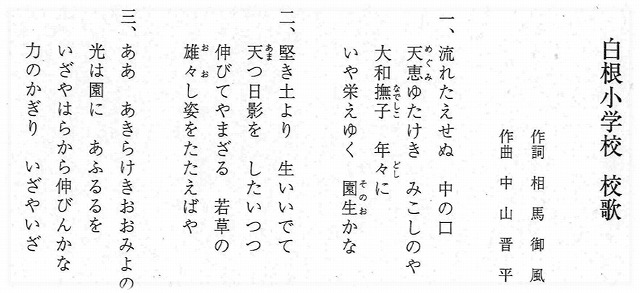 白根小学校 校歌
作詞 相馬御風
作曲 中山晋平
一、流れたえせぬ 中の口
天恵ゆたけき みこしのや
めぐみ
大和撫子 年々に
なでしこ どし
いや栄えゆく 園生かな
そのお
二、堅き土より 生いいでて
天つ日影を したいつつ
あま
伸びてやまざる 若草の
雄々し姿をたたえばや
おお
三、ああ あきらけきおおみよの
光は園に あふるるを
いざやはらから伸びんかな
力のかぎり いざやいざ